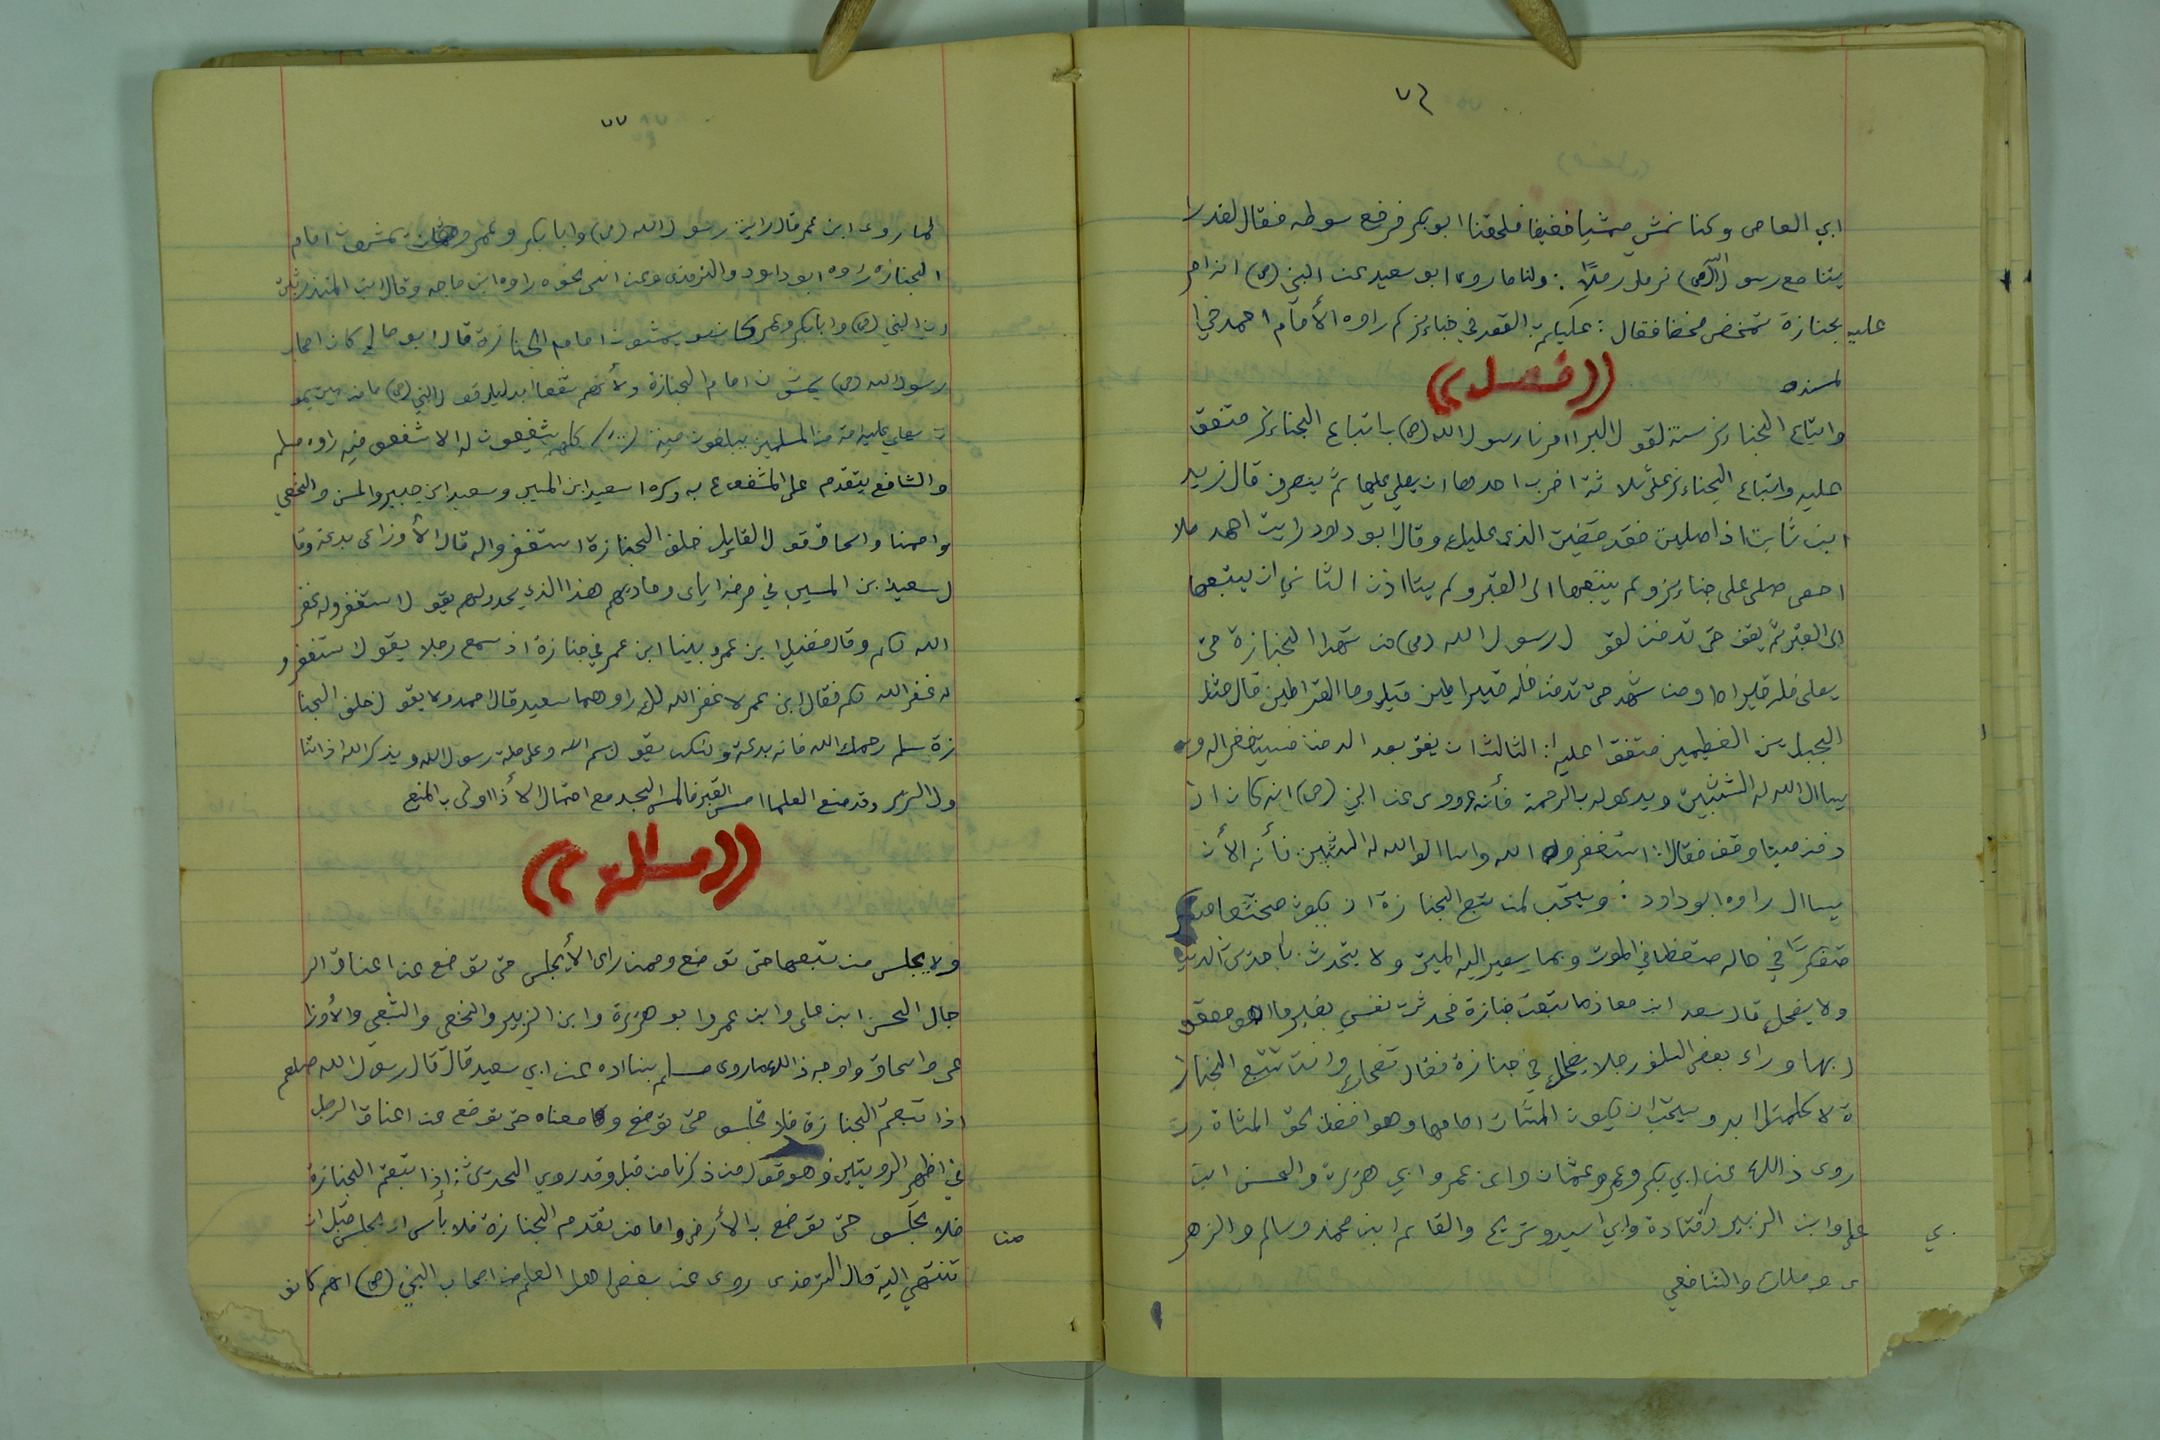 ٧٦
ابي العاص وكنا نمشي مشيا خفيفا فلحقنا ابو بكر فرفع سوطه فقال لقد را
يتنا مع رسول الله (ص) نرمل رملاً : ولنا ما روى ابو سعيد عن النبي (ص) انه امر
عليه بجنازة تمخض مخضا فقال : عليكم بالقصد في جنائزكم راوه الأمام احمد في ا
لمسنده
((فصل))
واتباع الجنائز سنة لقول البرا امرنا رسول الله (ص) باتباع الجنائز متفق
عليه واتباع الجنائز على ثلاثة اضرب احدهما ان يصلي عليها ثم ينصرف قال زيد
ابن ثابت اذا صليت فقد قضيت الذى عليك وقال ابو داود رايت احمد ملا
احصى صلى على جنائز ولم يتبعها الى القبر ولم يتاأذن الثاني ان يتبعها
الى القبر ثم يقف حتى تدفن لقول رسول الله (ص) من شهد الجنازة حتى
يصلى فله قيراط ومن شهد حتى تدفن فله قيراطين قيل وما القراطين قال مثل
الجبلين العظيمين متفقا عليه : الثالث ان يقف بعد الدفن فيستغفر اله و
يساال الله له التثبيت ويدعوله بالرحمة فأنه روى عن النبي (ص) انه كان اذ
دفن ميتا وقف فقال : استغفروا الله واساالوا الله له التثبيت فأنه الأن
يساال راوه ابو داود : ويستحب لمن تبع الجنازة ان يكون متخشعا
متفكرًا في حاله متعظا في الموت وبما يصير اليه الميت ولا يتحدث باحديث الدنيا
ولا يضحك قال سعد ابن معاذ ما تبعت جنازة فحدثت نفسي بغير ما هو مفعو
ل بها وراء بعض السلف رجلا يضحك في جنازة فقال تضحك وانت تتبع الجناز
ة لا كلمتك ابد ويستحب ان يكون المشات امامها وهو افضل بحق المشاة
روى ذالك عن ابي بكر وعمر وعثمان وابن عمر وابي هريرة والحسن ابن
علي وابن الزبير وقتادة وابي اسيد وشريح والقاسم ابن محمد وسالم والزهر
ى ومالك والشافعي
ي
٧٧
لما روى ابن عمر قال رايت رسول الله (ص) وابا بكر وعمر وعثمان يمشون امام
الجنازه راوه ابو داود والترمذى وعن انس نحوه راوه ابن ماجه وقال ابن المنذر ثبت
ان النبي (ص) وابا بكر وعمر كانو يمشون امام الجنازة قال ابو صالح كان اصحاب
رسول الله (ص) يمشون امام الجنازة ولأنهم شفعاا بدليل قول النبي (ص) ما من ميت يمو
ت يصلي عليه امة من المسلمين يبلغون مية (١٠٠) كلهم يشفعون له الا شفعو فيه راوه مسلم
والشافع يتقدم على المشفوع به وكره ا سعيد ابن المسيب وسعيد ابن جبير والحسن والنخعي
وامامنا واسحاق قول القايل خلف الجنازة استغفروا له قال الأوزاعى بدعة وقا
ل سعيد بن المسيب في مرضه اياى وحاديهم هذا الذي يحدولهم يقول استغفروله غفر
الله لكم وقال فضيل ابن عمرو بينا ابن عمر في جنازة اذ سمع رجلا يقول استغفرو
له غفر الله لكم فقال ابن عمر لا غفر الله لك راوهما سعيد قال احمد ولا يقول خلف الجنا
زة سلم رحمك الله فانه بدعة ولكن يقول بسم الله وعلى ملة رسول الله ويذكر الله اذا تنا
ول السرير وقد منع العلماا مس القبر فالمس الجسد مع احتمال الأذا اولى بالمنع
((مسألة))
ولا يجلس من تبعها حتى توضع وممن راى الأيجلس حتى توضع عن اعناق الر
جال الحسن ابن على وابن عمر وابو هريرة وابن الزبير والنخعي والشعبي والأوزا
عى واسحاق واوجه ذالك ماروى مسلم بناده عن ابي سعيد قال قال رسول الله صلعم
اذا تبعتم الجنازة فلا تجلسو حتى توضع ومعناه حتى توضع من اعناق الرجل
في اظهر الرويتين وهو قول من ذكرنا من قبل وقد روي الحديث : إذا تبعتم الجنازة
فلا تجلسو حتى توضع بالأرض واما من تقدم الجنازة فلا بأس ان يجلس قبل ان
تنتهي اليه قال الترمذى روى عن بعض اهل العلم من اصحاب النبي (ص) انهم كانو
منا